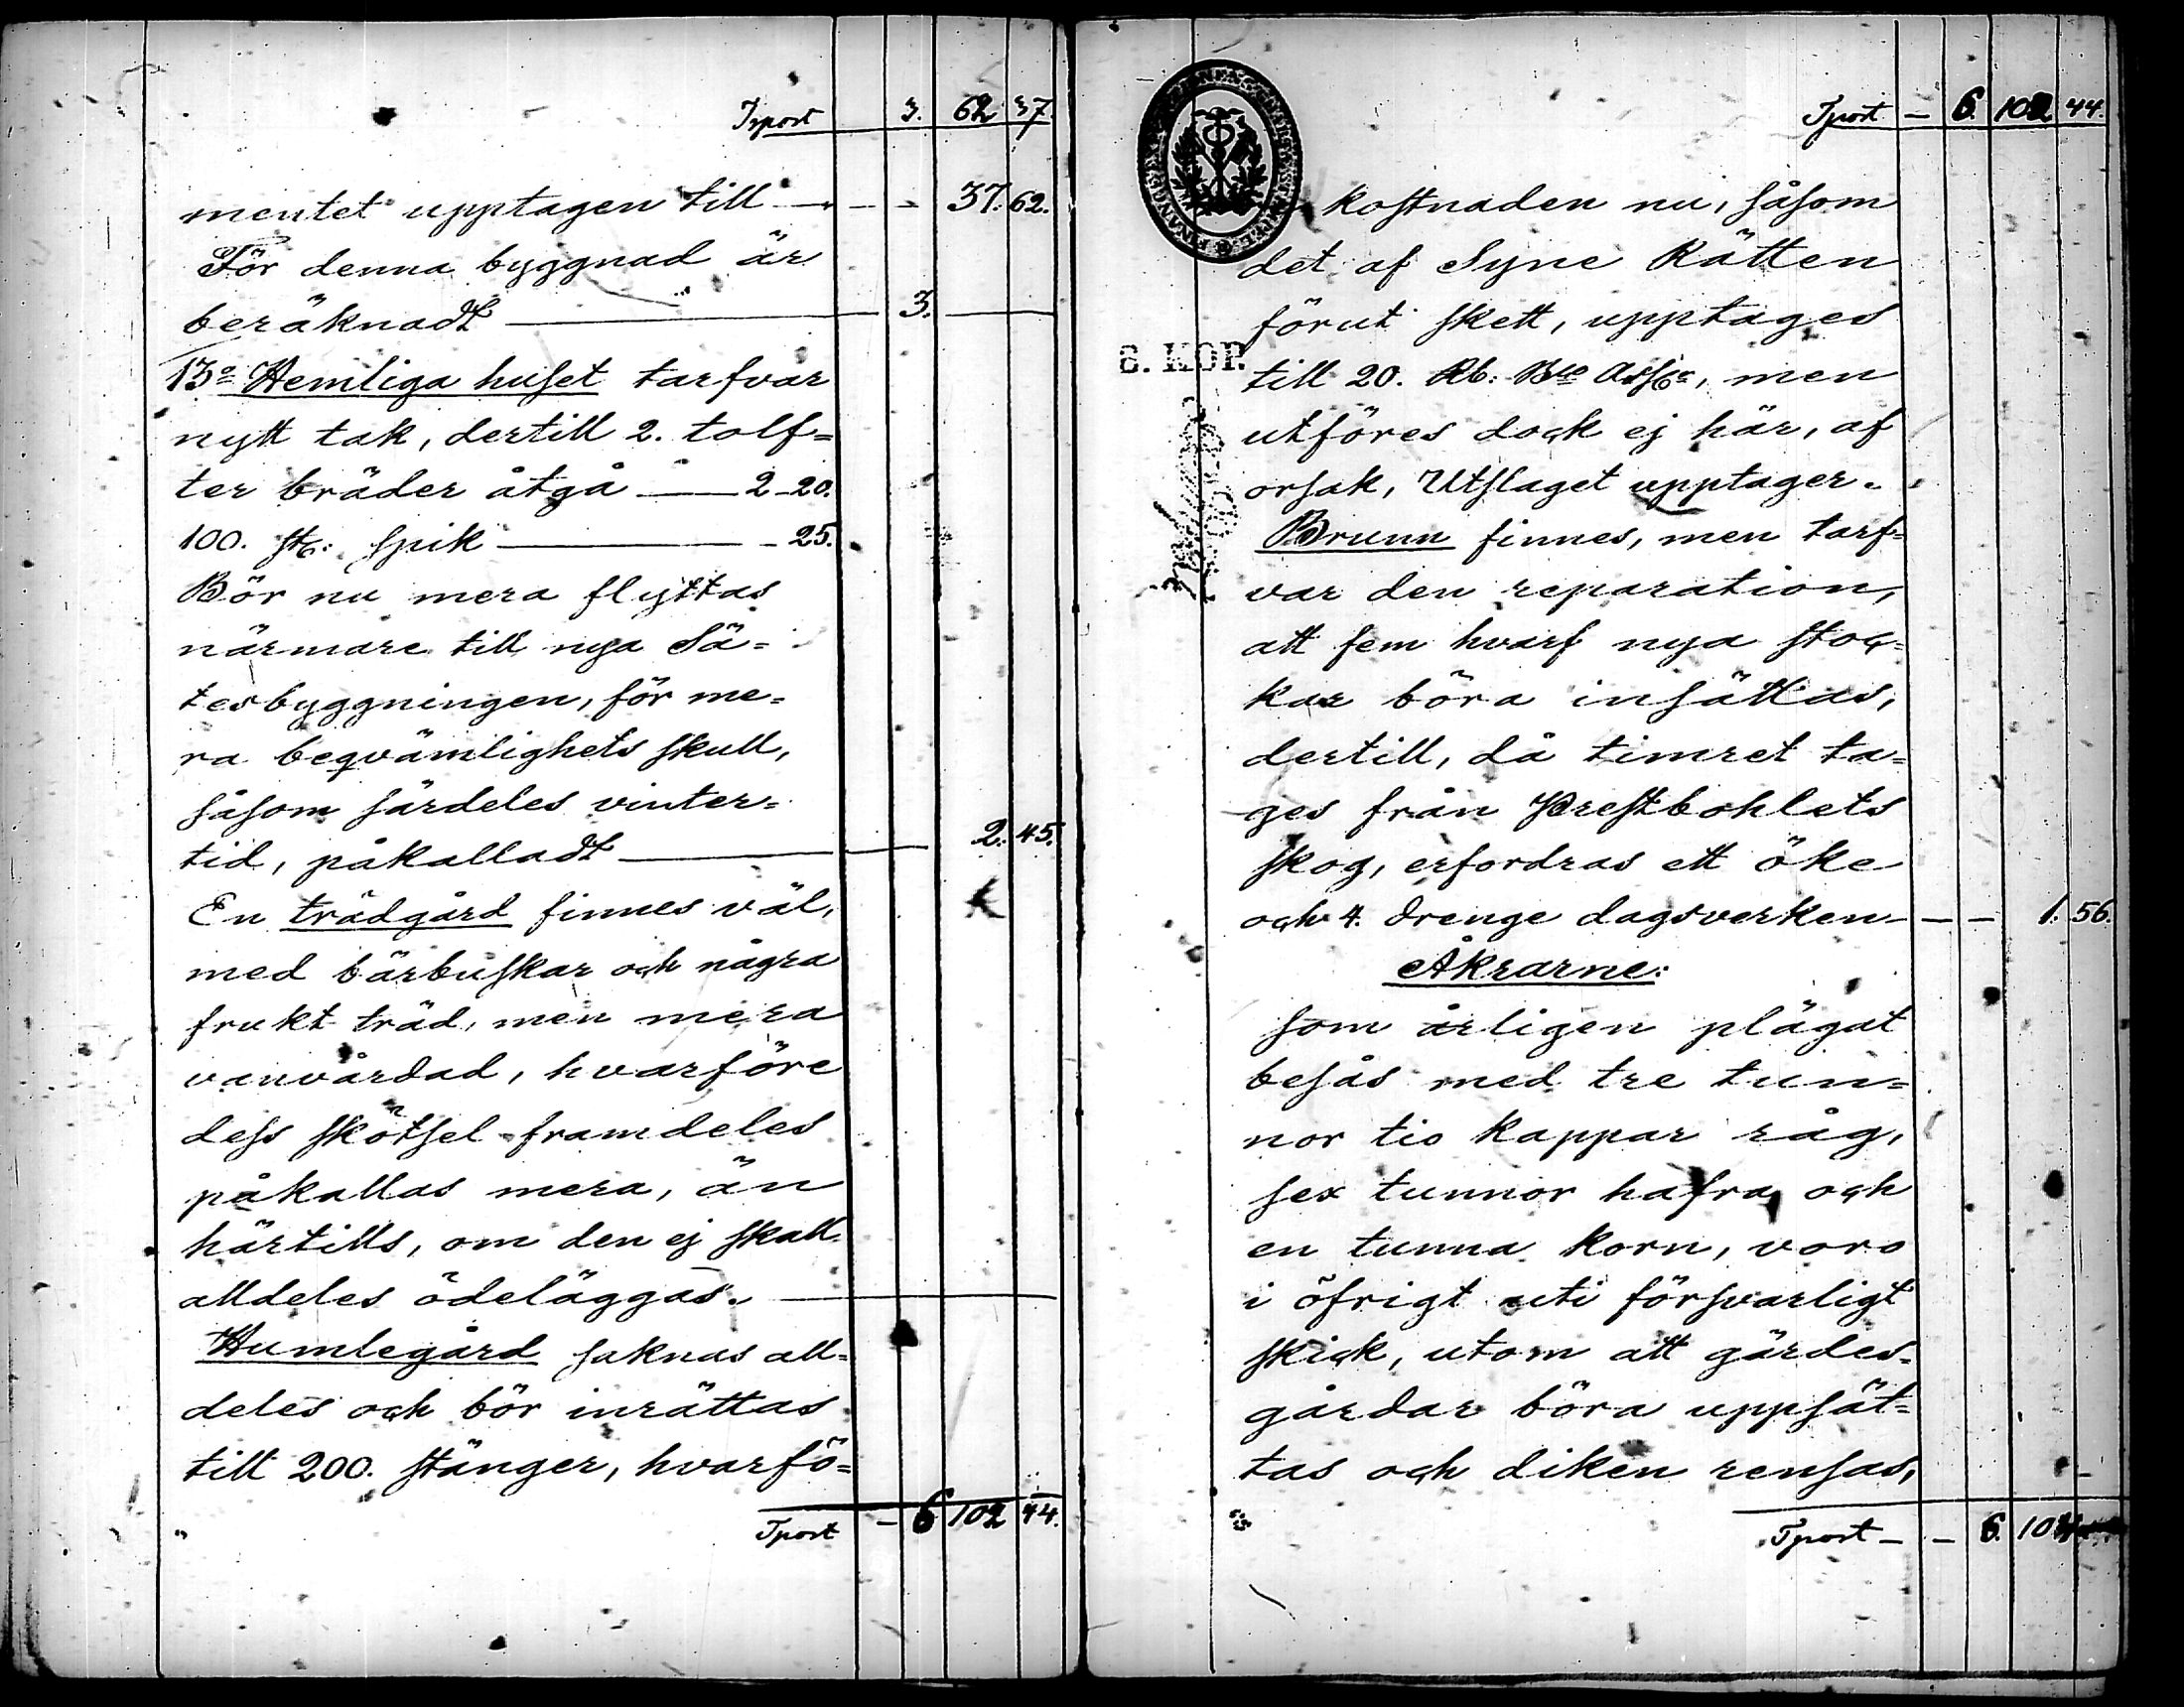 Tsport 3. 62 37.
mentet upptagen till — - - 37. 62.
För denna byggnad är
beräknadt — 3. —
13o Hemliga huset tarfvar
nytt tak, dertill 2. tolf=
ter bräder åtgå — 2 - 20.
100. st: spik — - 25.
Bör nu mera flyttas
närmare till nya Sä=
tesbyggningen, för me=
ra beqvämlighets skull,
såsom särdeles vinter=
tid, påkalladt — 2. 45.
En trädgård finnes väl,
med bärbuskar och några
frukt träd, men mera
vanvårdad, hvarföre
dess skötsel framdeles
påkallas mera, än
härtills, om den ej skall
alldeles ödeläggas. —
Humlegård saknas all=
deles och bör inrättas
till 200. stänger, hvarfö=
Tport - 6 102 44.
Tport - 6. 102 44.
kostnaden nu, såsom
det af Syne Rätten
förut skett, upptages
8. KOP.
till 20. Rb: Bco Assg, men
utföres dock ej här, af
orsak, Utslaget upptager.
Brunn finnes, men tarf=
var den reparation,
att fem hvarf nya stoc=
kar böra insättas,
dertill, då timret ta=
ges från Prestbohlets
skog, erfordras ett öke
och 4. drenge dagsverken — - - 1. 56.
Åkrarne:
som årligen plägat
besås med tre tun=
nor tio kappar råg,
sex tunnor hafra och
en tunna korn, voro
i öfrigt uti försvarligt
skick, utom att gärdes=
gårdar böra uppsät=
tas och diken rensas,
Tport - - 6. 104